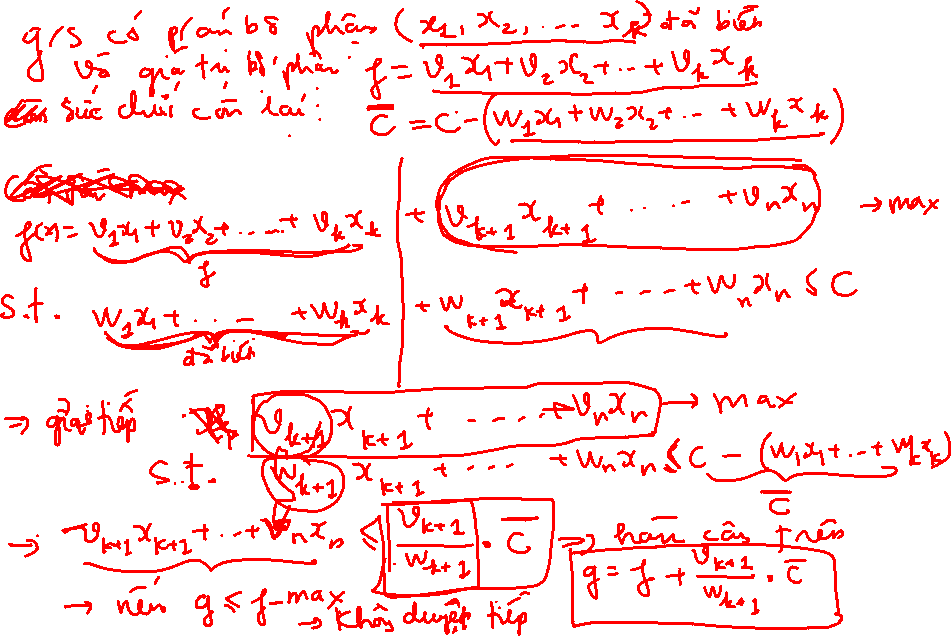 g/s có p/án bộ phận (x₁, x₂, ... x_k) đã biến
và giá trị bộ phận f = v₁x₁ + v₂x₂ + ... + v_k x_k
sức chứa còn lại: C̄ = C - (w₁x₁ + w₂x₂ + ... + w_k x_k)
f(x) = v₁x₁ + v₂x₂ + ..... + v_k x_k + v_{k+1} x_{k+1} + ..... + v_n x_n → max
f
s.t. w₁x₁ + ..... + w_k x_k + w_{k+1} x_{k+1} + ..... + w_n x_n ≤ C
đã biến
⇒ giải tiếp v_{k+1} x_{k+1} + ..... + v_n x_n → max
s.t. w_{k+1} x_{k+1} + .... + w_n x_n ≤ C - (w₁x₁ + ... + w_k x_k)
C̄
→ v_{k+1} x_{k+1} + ... + v_n x_n ≤ v_{k+1}/w_{k+1} . C̄ ⇒ hàm cận trên
g = f + v_{k+1}/w_{k+1} . C̄
→ nếu g ≤ f-max → không duyệt tiếp